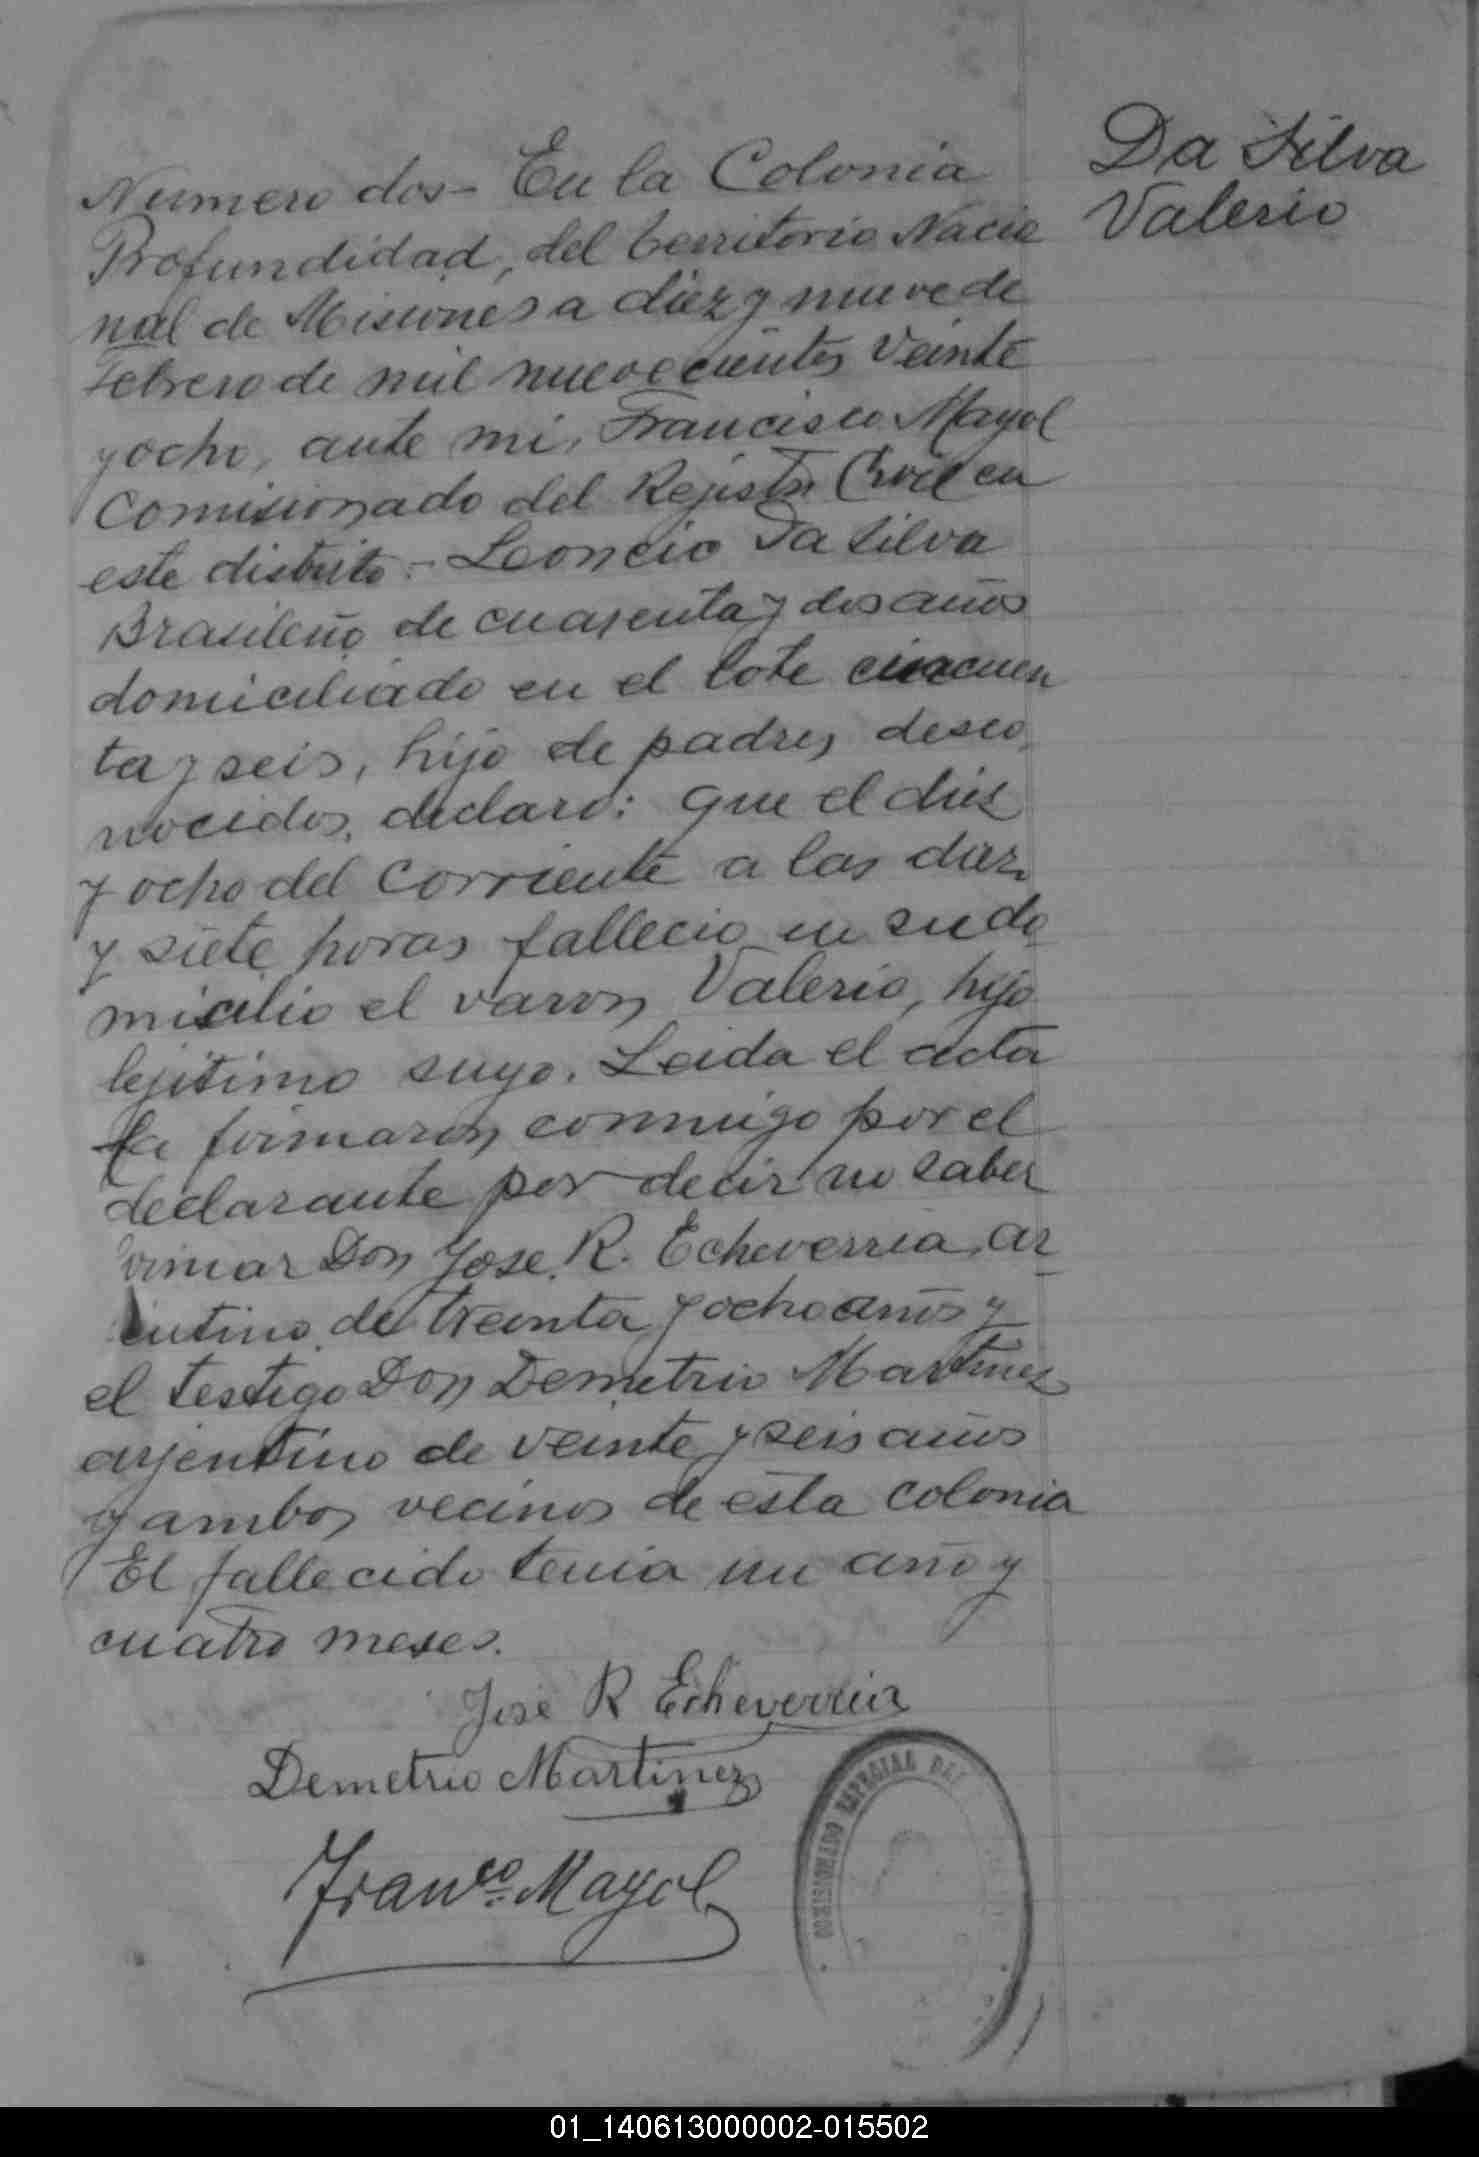 Da Silva
Valerio
Numero dos - En la Colonia
Profundidad, del territorio Nacio
nal de Misiones a diez y nueve de
Febrero de mil nuevecientos veinte
y ocho, ante mi, Francisco Mayol
Comisionado del Rejistro Civil en
este distrito - Leoncio Da Silva
Brasileño de cuarenta y dos años
domiciliado en el lote cincuen
ta y seis, hijo de padres desco
nocidos, declaro: que el diez
y ocho del corriente a las diez
y siete horas fallecio en su do
micilio el varon Valerio, hijo
lejitimo suyo. Leida el acta
la firmaron conmigo por el
declarante por decir no saber
firmar Don Jose R. Echeverria, ar
jentino de treinta y ocho años y
el testigo Don Demetrio Martinez
arjentino de veinte y seis años
y ambos vecinos de esta colonia
El fallecido tenia un año y
cuatro meses.
Jose R Echeverria
Demetrio Martinez
Franco. Mayol
COMISIONADO ESPECIAL DEL
01_140613000002-015502